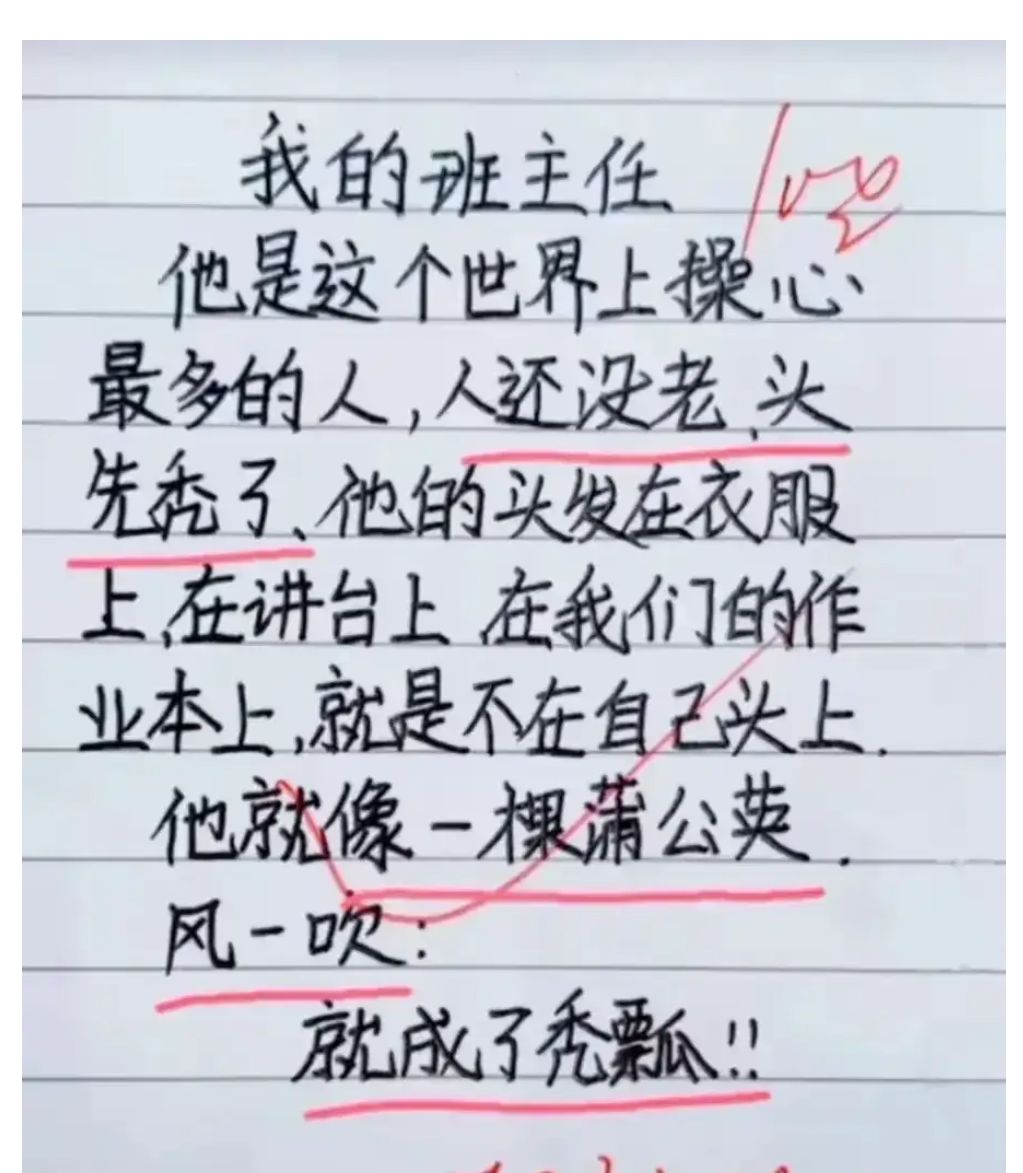 我的班主任
他是这个世界上操心
最多的人,人还没老、头
先秃了、他的头发在衣服
上,在讲台上、在我们的作
业本上,就是不在自己头上.
他就像一棵蒲公英.
风一吹:
就成了秃瓢!!